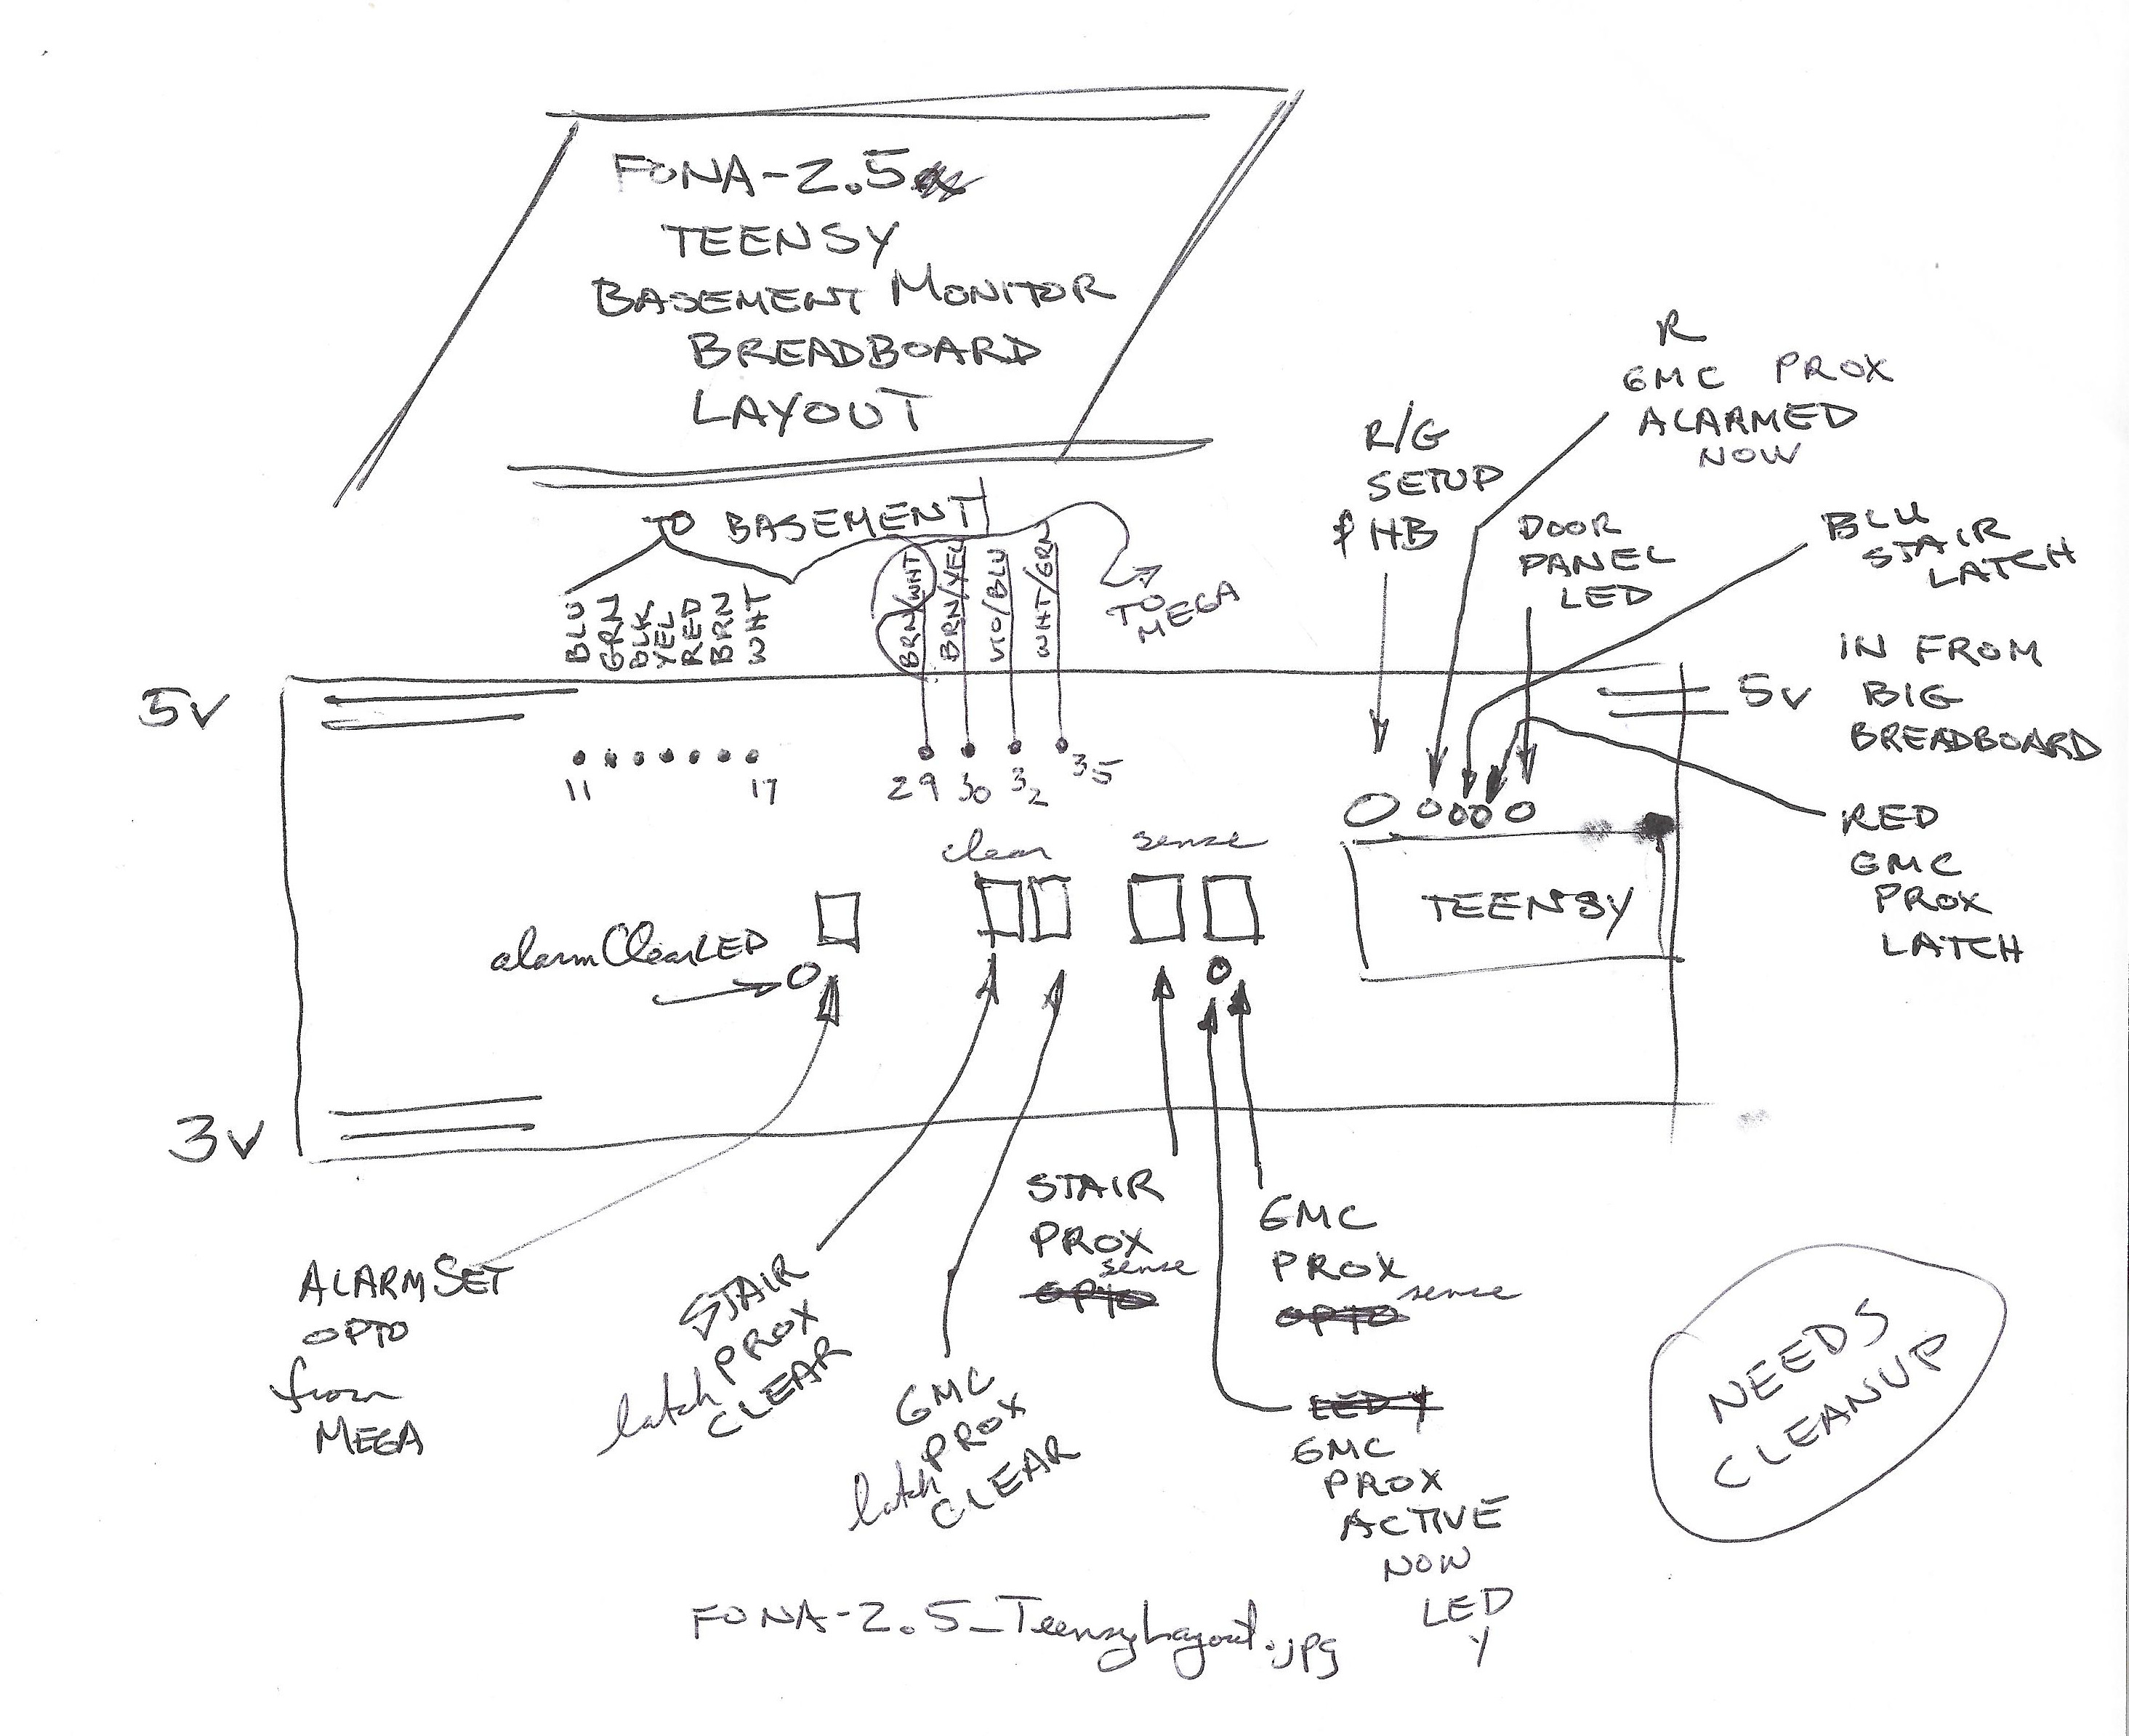 FONA-2.5
TEENSY
BASEMENT MONITOR
BREADBOARD
LAYOUT
TO BASEMENT
BLU
GRN
BLK
YEL
RED
BRN
WHT
BRN/WHT
BRN/YEL
VIO/BLU
WHT/GRN
TO
MEGA
R/G
SETUP
& HB
R
GMC PROX
ALARMED
NOW
DOOR
PANEL
LED
BLU
STAIR
LATCH
5V
5V
IN FROM
BIG
BREADBOARD
11
17
29
30
32
35
RED
GMC
PROX
LATCH
clear
sense
TEENSY
alarmClearLED
3V
ALARMSET
OPTO
from
MEGA
STAIR
latch PROX
CLEAR
GMC
PROX
latch CLEAR
STAIR
PROX
sense
OPTO
GMC
PROX
sense
OPTO
LED Y
GMC
PROX
ACTIVE
NOW
LED
Y
NEEDS
CLEANUP
FONA-2.5_TeensyLayout.jpg